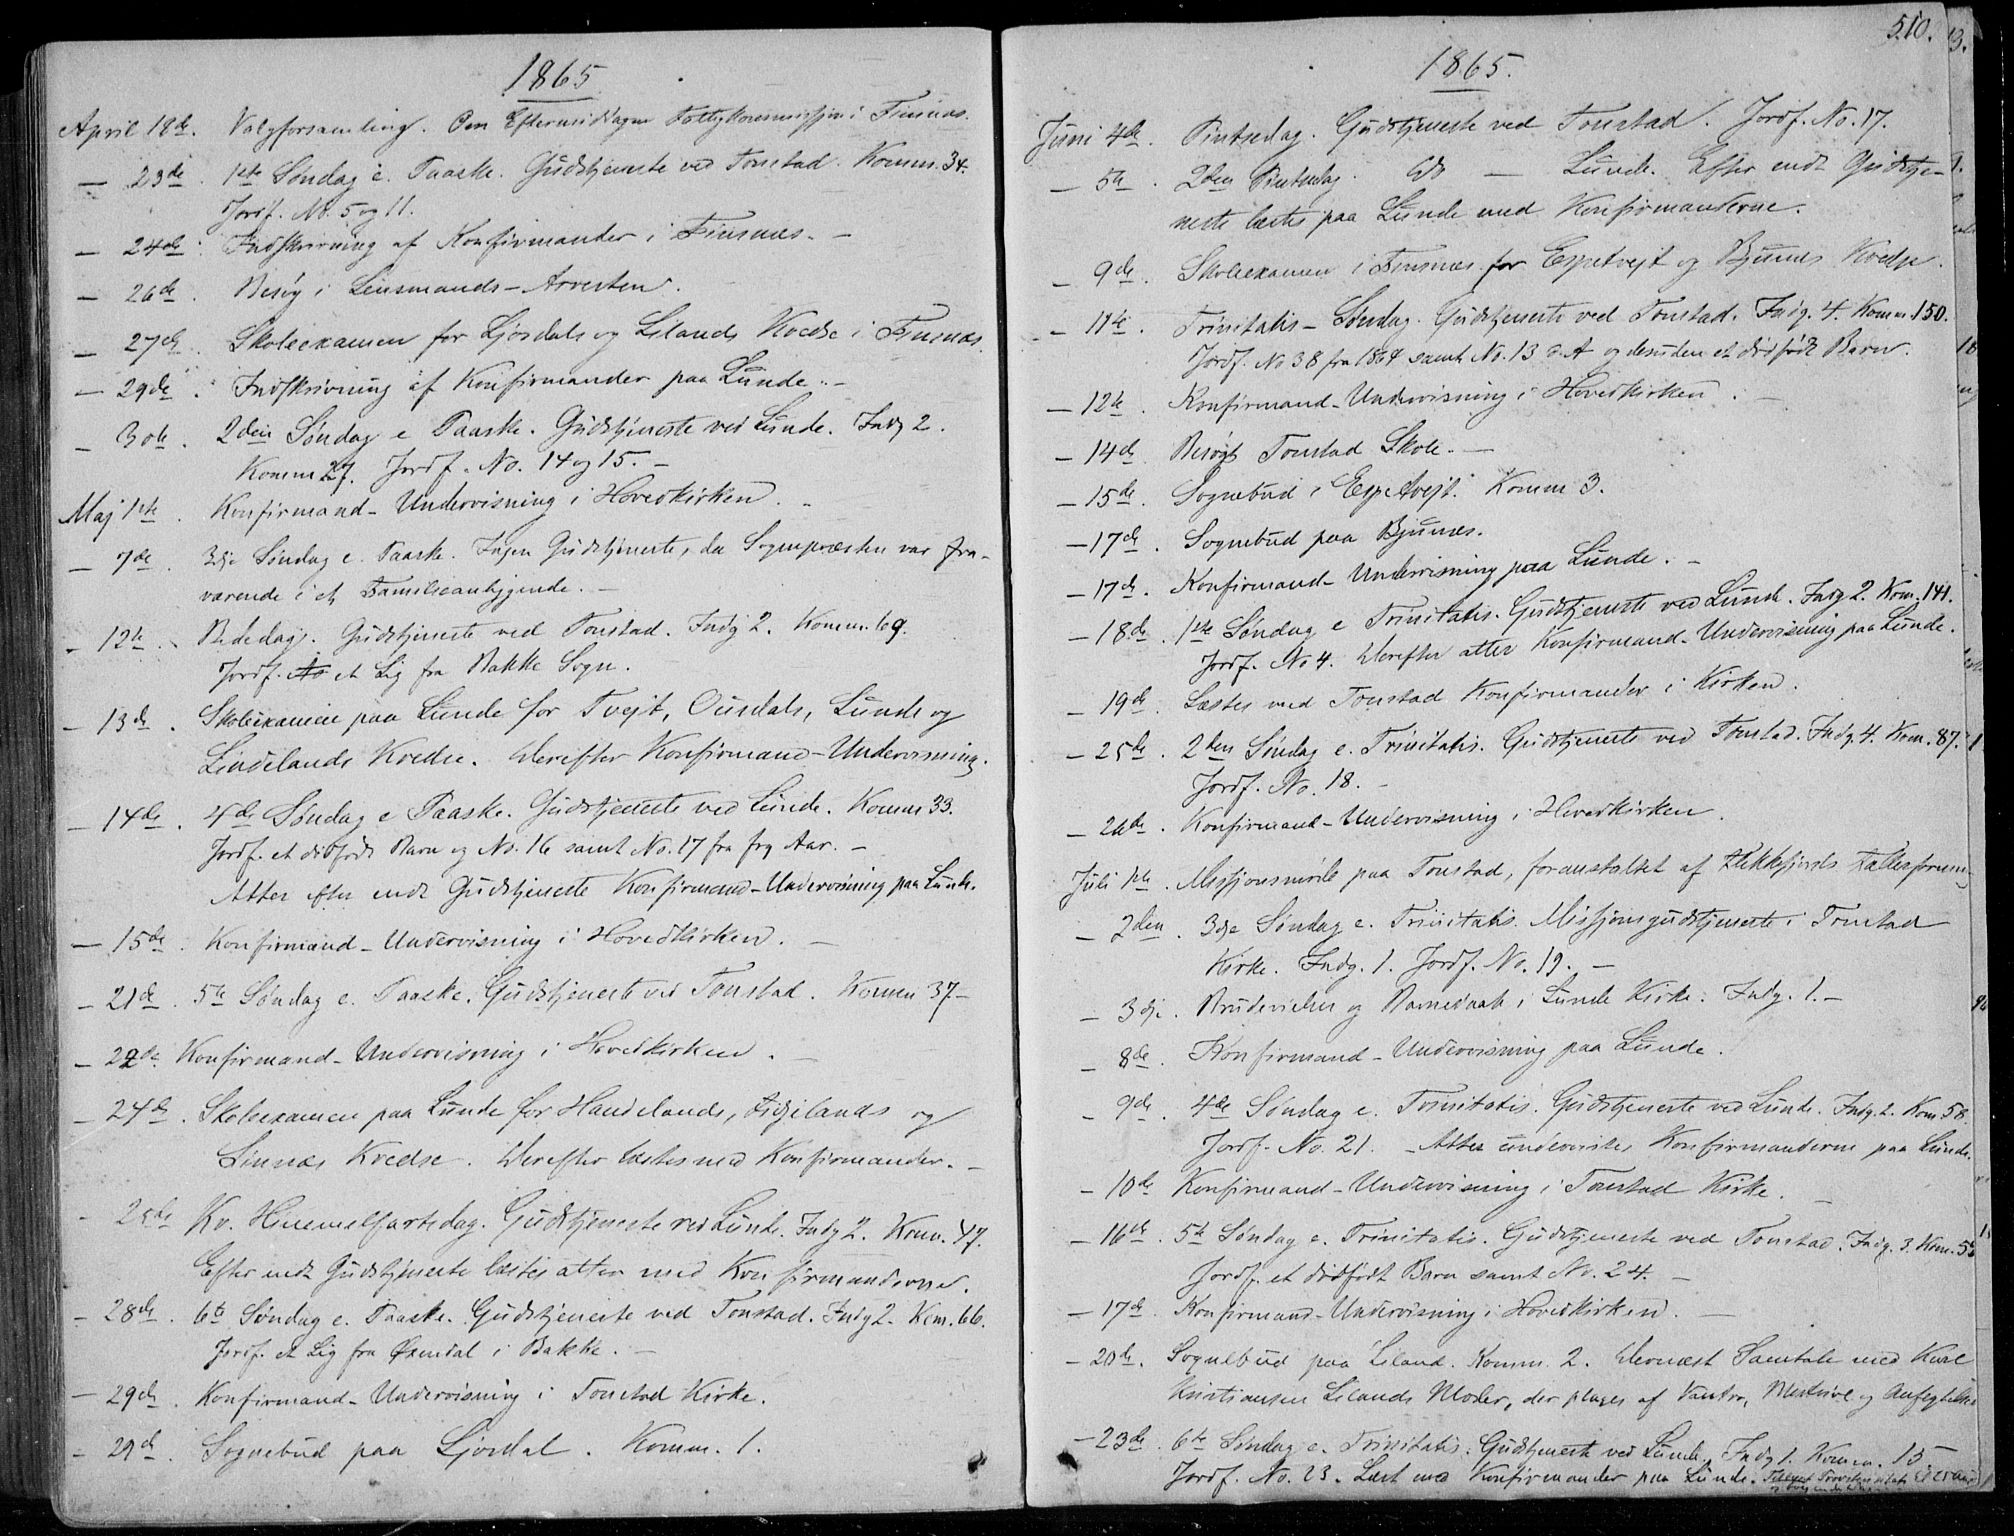 1865
April 18de. Valgforsamling. Om Eftermiddagen Fattigkommission i Finsnæs.
— 23de. 1ste Søndag e. Paaske. Gudstjeneste ved Tonstad. Komm. 34.
Jordf. No. 5 og 11.
— 24de. Indskrivning af Konfirmander i Finsnæs. —
— 26de. Besøg i Lensmands-Arresten.
— 27de. Skoleexamen for Sjøsdals og Lilands Kredse i Finsnæs.
— 29de. Indskrivning af Konfirmander paa Lunde. —
— 30te. 2den Søndag e Paaske. Gudstjeneste ved Lunde. Indg 2.
Komm 27. Jordf. No. 14 og 15. —
Maj 1ste. Konfirmand-Undervisning i Hovedkirken. —
— 7de. 3dje Søndag e. Paaske. Ingen Gudstjeneste, da Sognepræsten var fra-
værende i et Familieanliggende. —
— 12te. Bededag. Gudstjeneste ved Tonstad. Indg 2. Komm. 69.
Jordf. et Lig fra Bakke Sogn.
— 13de. Skoleexamen paa Lunde for Tvejt, Ousdals, Lunde og
Lindelands Kredse. Derefter Konfirmand-Undervisning.
— 14de. 4de Søndag e Paaske. Gudstjeneste ved Lunde. Komm 33.
Jordf. et dødfødt Barn og No. 16 samt No. 17 fra frg Aar. —
Atter efter endt Gudstjeneste Konfirmand-Undervisning paa Lunde.
— 15de. Konfirmand-Undervisning i Hovedkirken. —
— 21de. 5te Søndag e. Paaske. Gudstjeneste ved Tonstad. Komm 37—
— 22de. Konfirmand-Undervisning i Hovedkirken. —
— 24de. Skoleexamen paa Lunde for Haudelands, og
Kredse. Derefter læstes med Konfirmander. —
- 25de Kr. Himmelfartsdag. Gudstjeneste ved Lunde. Indg 2. Kom. 47.
Efter endt Gudstjeneste læstes atter med Konfirmanderne.
— 28de. 6te Søndag e. Paaske. Gudstjeneste ved Tonstad. Indg 2. Kom. 66.
Jordf. et Lig fra Øxendal i Bakke. —
— 29de. Konfirmand-Undervisning i Tonstad Kirke.
— 29de. Sognebud paa Sjøsdal. Komm. 1.
510.
1865.
Juni 4de. Pintsedag. Gudstjeneste ved Tonstad. Jordf. No. 17.
— 5te. 2den Pintsedag. do — Lunde. Efter endt Gudstje-
neste læstes paa Lunde med Konfirmanderne.
— 9de. Skoleexamen i Finsnæs for Espetvejt og Bjunes Kredse.
— 11te. Trinitatis-Søndag. Gudstjeneste ved Tonstad. Indg. 4. Komm. 150.
Jordf. No 38 fra 1864 samt No. 13 d. A og desuden et dødfødt Barn.
— 12te. Konfirmand-Undervisning i Hovedkirken. —
— 14de. Besøgt Tonstad Skole. —
— 15de. Sognebud i Espetvejt. Komm 3.
— 17de. Sognebud paa Bjunes.
— 17de. Konfirmand-Undervisning paa Lunde. —
— 18de. 1ste Søndag e Trinitatis. Gudstjeneste ved Lunde. Indg 2. Kom. 141.
Jordf. No 4. Derefter atter Konfirmand-Undervisning paa Lunde.
— 19de. Læstes med Tonstad Konfirmander i Kirken.
— 25de. 2den Søndag e. Trinitatis. Gudstjeneste ved Tonstad. Indg. 4. Kom. 87.
Jordf. No. 18. —
— 26de. Konfirmand-Undervisning i Hovedkirken.
Juli 1ste. Missjonsmøde paa Tonstad, foranstaltet af Flekkefjords
— 2den. 3dje Søndag e. Trinitatis. Missjonsgudstjeneste i Tonstad
Kirke. Indg. 1. Jordf. No. 19. —
— 3dje. Brudevielse og Barnedaab i Lunde Kirke. Indg. 1. —
— 8de. Konfirmand-Undervisning paa Lunde.
— 9de. 4de Søndag e. Trinitatis. Gudstjeneste ved Lunde. Indg. 2. Kom 58.
Jordf. No. 21. — Atter undervistes Konfirmanderne paa Lunde.
— 10de Konfirmand-Undervisning i Tonstad Kirke. —
— 16de. 5te Søndag e. Trinitatis. Gudstjeneste ved Tonstad. Indg. 3. Kom. 56
Jordf. et dødfødt Barn samt No. 24. —
— 17de. Konfirmand-Undervisning i Hovedkirken. —
— 20de. Sognebud paa Liland. Komm. 2. Dernæst Samtale med Karl
Kristiansen Lilands Moder, der plages af Vantro, Mistvivl og Anfegtelse
— 23de. 6te Søndag e. Trinitatis. Gudstjeneste ved Lunde. Indg 1. Komm. 15.
Jordf. No. 23. Læst med Konfirmander paa Lunde.